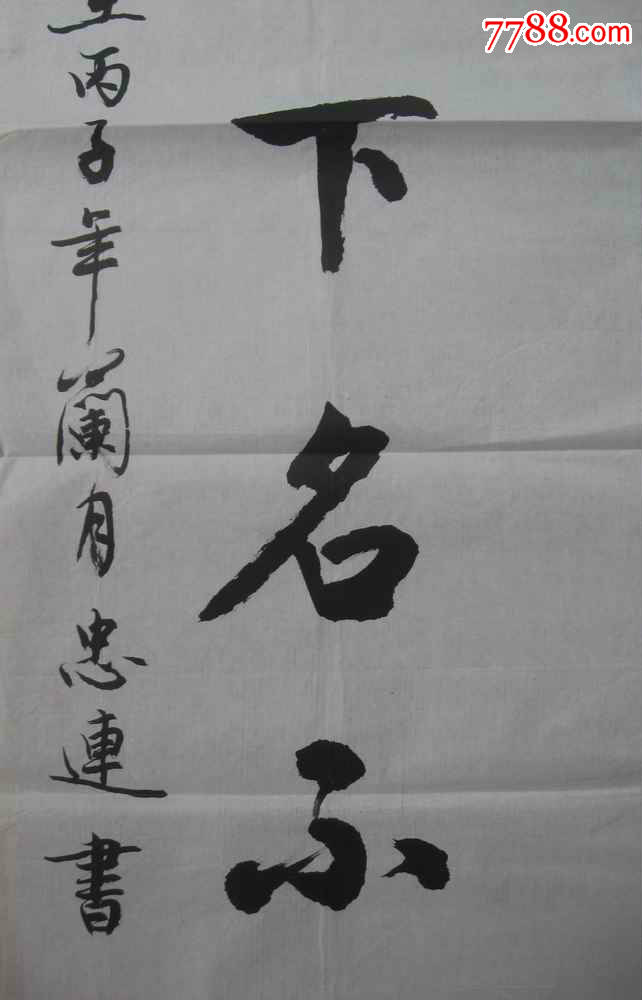 7788.com
下名不
丙子年蘭月忠連書